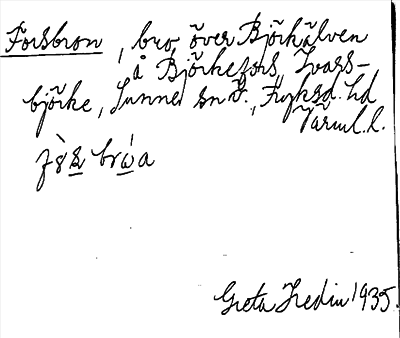 Forsbron, bro över Björkälven
å Björkefors, Ivars-
björke, Sunne sn, Fryksd. hd
Värml. l.
fòs brẁa
Greta Hedin 1935.